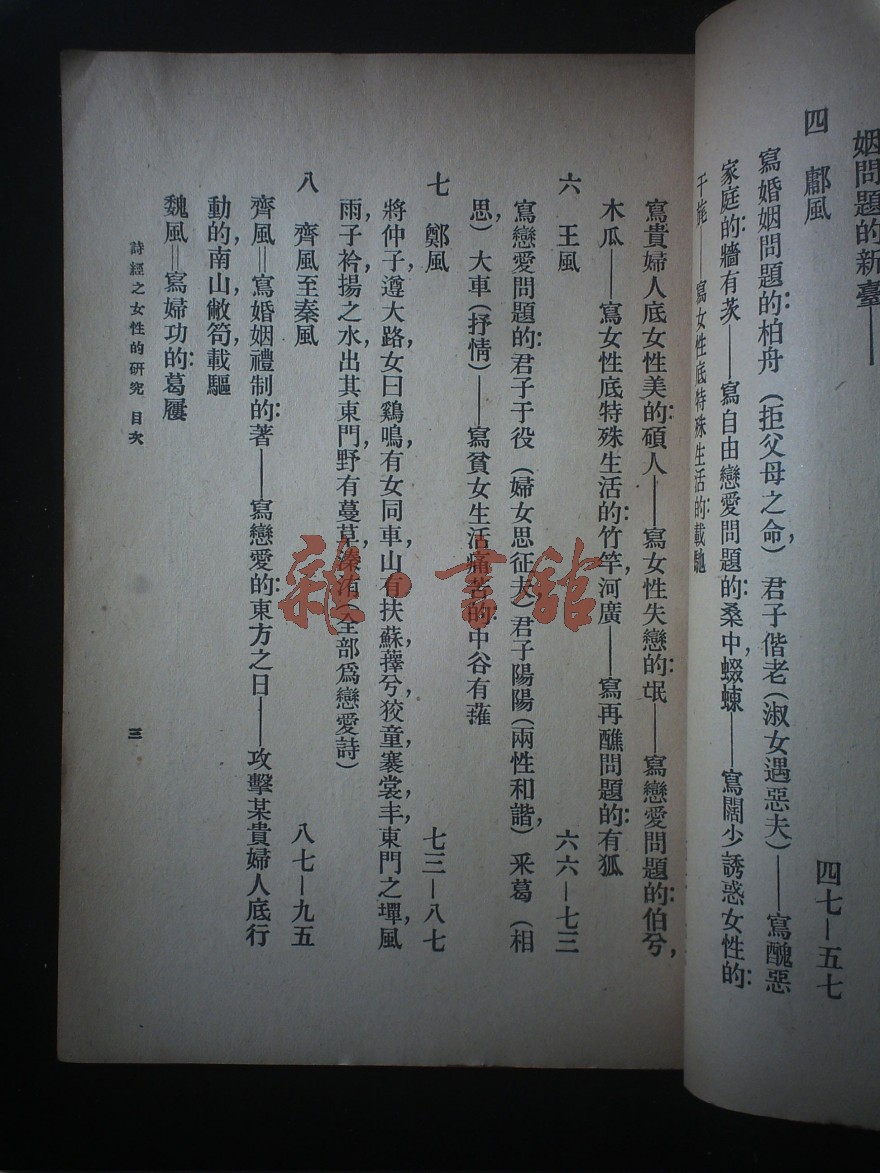 姻問題的新臺——
四　鄘風　四七—五七
寫婚姻問題的：柏舟（拒父母之命），君子偕老（淑女遇惡夫）——寫醜惡
家庭的：牆有茨——寫自由戀愛問題的：桑中，蝃蝀——寫闊少誘惑女性的：
干旄　寫女性底特殊生活的：載馳
寫貴婦人底女性美的：碩人——寫女性失戀的：氓——寫戀愛問題的：伯兮，
木瓜——寫女性底特殊生活的：竹竿，河廣——寫再醮問題的：有狐
六　王風　六六—七三
寫戀愛問題的：君子于役（婦女思征夫）君子陽陽（兩性和諧），釆葛（相
思）大車（抒情）——寫貧女生活痛苦的：中谷有蓷
七　鄭風　七三—八七
將仲子，遵大路，女曰鷄鳴，有女同車，山有扶蘇，蘀兮，狡童，褰裳，丰，東門之墠，風
雨，子衿，揚之水，出其東門，野有蔓草，溱洧（全部爲戀愛詩）
八　齊風至秦風　八七—九五
齊風＝寫婚姻禮制的：著——寫戀愛的：東方之日——攻擊某貴婦人底行
動的：南山，敝笱，載驅
魏風＝寫婦功的：葛屨
詩經之女性的研究　目次
三
雜·書館